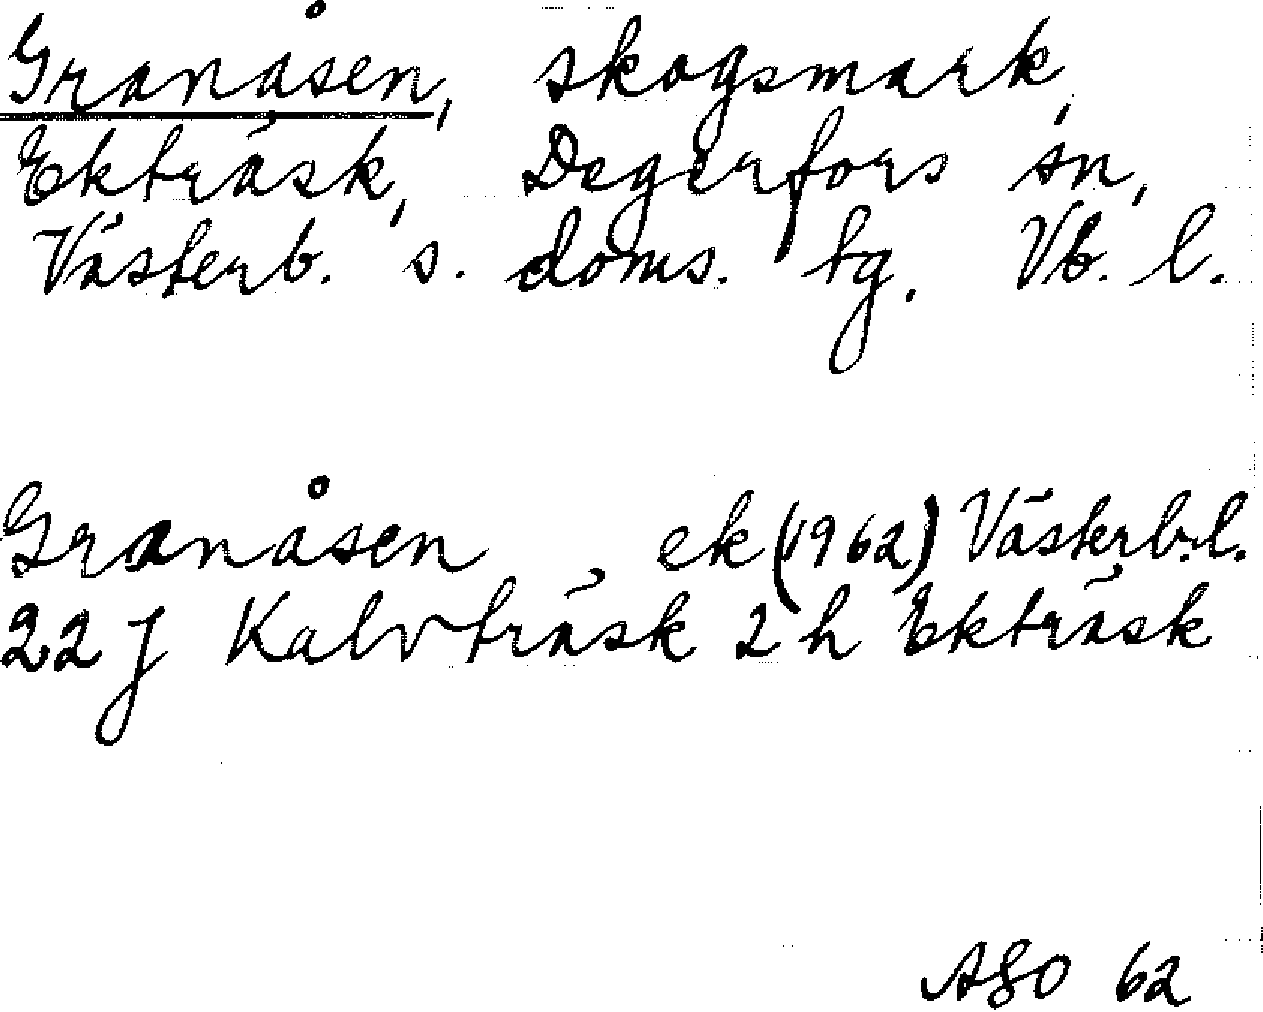 Granåsen, skogsmark,
Ekträsk, Degerfors sn,
Västerb. s. doms. tg. Vb. l.
Granåsen ek (1962) Västerb. l.
22 J Kalvträsk 2 h Ekträsk
ASO 62